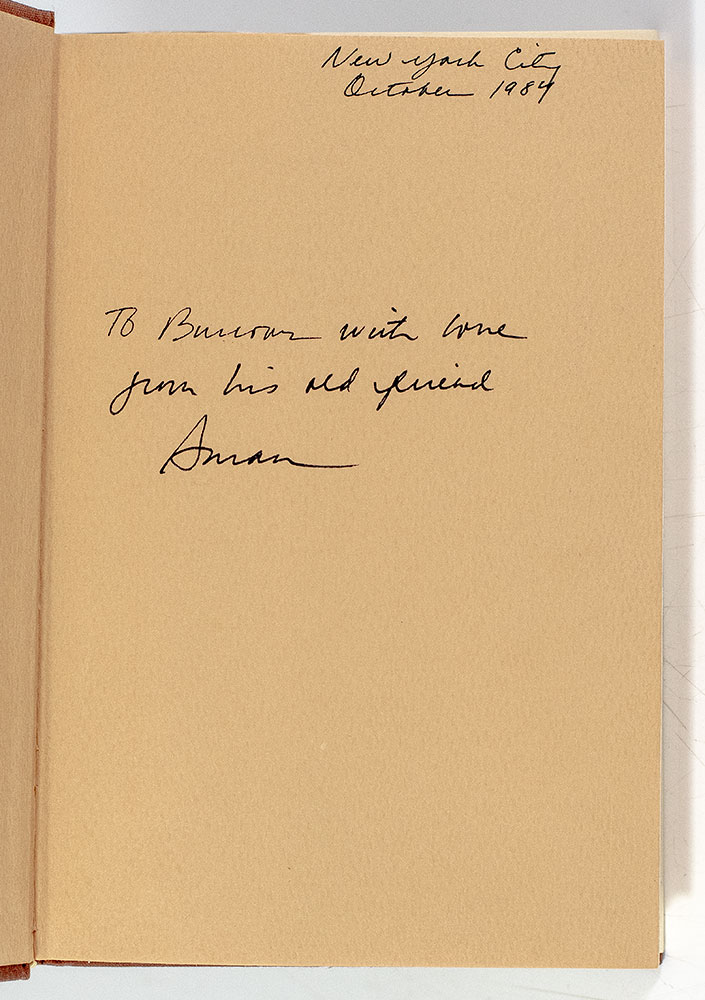 New York City
October 1984
To with love
from his old friend